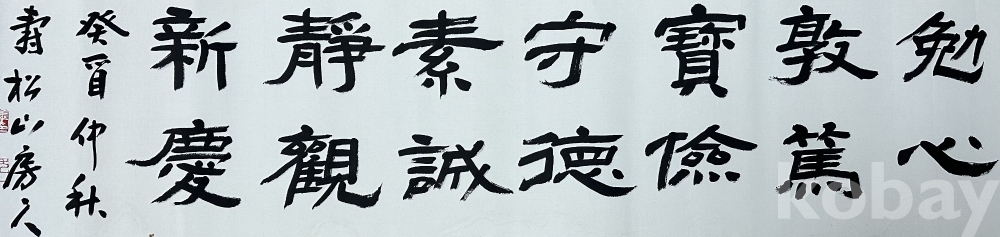 勉心
敦篤
寶儉
守德
素誠
靜觀
新慶
癸酉仲秋
壽松山房主人
kobay